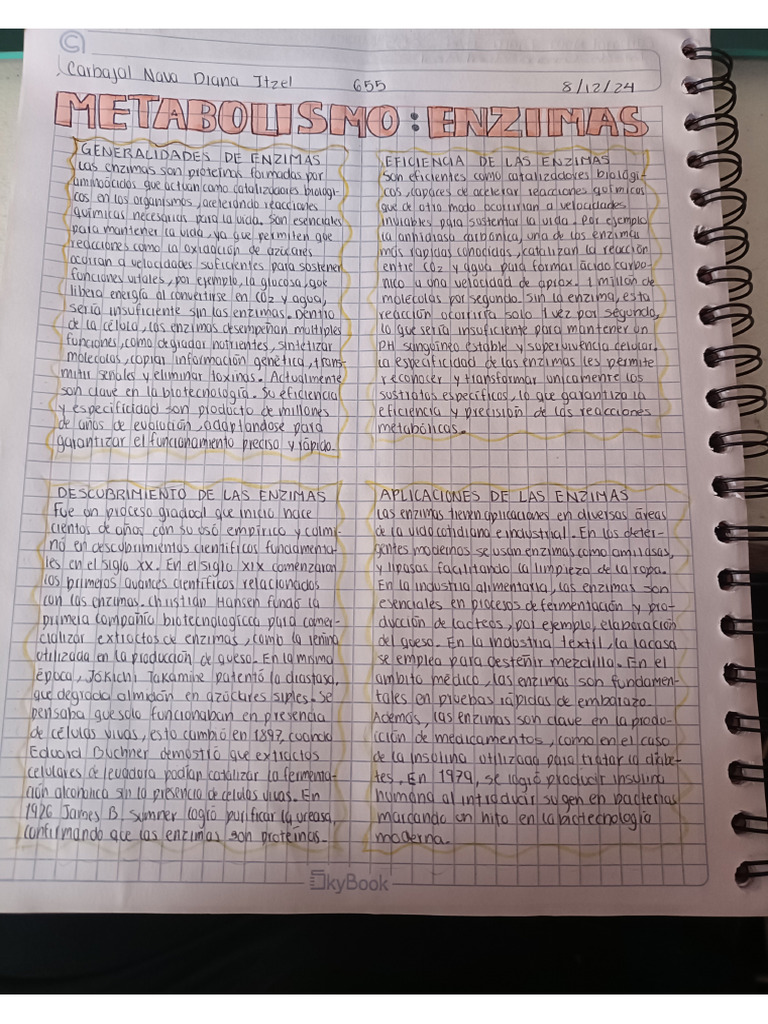 Carbajal Nava Diana Itzel 655 8/12/24
METABOLISMO: ENZIMAS
GENERALIDADES DE ENZIMAS
Las enzimas son proteínas formadas por
aminoácidos que actuan como catalizadores biologi-
cos en los organismos, acelerando reacciones
químicas necesarias para la vida. Son esenciales
para mantener la vida ya que permiten que
reacciones como la oxidación de azúcares
ocurran a velocidades suficientes para sostener
funciones vitales, por ejemplo, la glucosa, que
libera energía al convertirse en CO2 y agua,
sería insuficiente sin las enzimas. Dentro
de la célula, las enzimas desempeñan multiples
funciones, como degradar nutrientes, sintetizar
moleculas, copiar información genética, trans-
mitir señales y eliminar toxinas. Actualmente
son clave en la biotecnología. Su eficiencia
y especificidad son producto de millones
de años de evolución, adaptandose para
garantizar el funcionamiento preciso y rápido.
EFICIENCIA DE LAS ENZIMAS
Son eficientes como catalizadores biológi-
cos, capaces de acelerar reacciones químicas
que de otro modo ocurririan a velocidades
inviables para sustentar la vida. Por ejemplo
la anhidrasa carbónica, una de las enzimas
más rápidas conocidas, catalizan la reacción
entre CO2 y agua para formar ácido carbo-
nico a una velocidad de aprox. 1 millón de
moleculas por segundo. Sin la enzima, esta
reacción ocurriría solo 1 vez por segundo,
lo que sería insuficiente para mantener un
PH sanguineo estable y supervivencia celular.
La especificidad de las enzimas les permite
reconocer y transformar unicamente los
sustratos específicos, lo que garantiza la
eficiencia y precisión de las reacciones
metabólicas.
DESCUBRIMIENTO DE LAS ENZIMAS
Fue un proceso gradual que inicio hace
cientos de años con su uso empírico y culmi-
nó en descubrimientos científicos fundamenta-
les en el siglo XX. En el siglo XIX comenzaron
los primeros avances científicos relacionados
con las enzimas. Christian Hansen fundó la
primera compañía biotecnologicca para comer-
cializar extractos de enzimas, como la renina
utilizada en la producción de queso. En la misma
época, Jokichi Takamine patentó la diastasa,
que degrada almidón en azúcares siples. Se
pensaba que solo funcionaban en presencia
de células vivas, esto cambió en 1897, cuando
Eduard Buchner demostró que extractos
celulares de levadura podían catalizar la fermenta-
ción alcoholica sin la presencia de celulas vivas. En
1926 James B. Sumner logró purificar la ureasa,
confirmando que las enzimas son proteínas.
APLICACIONES DE LAS ENZIMAS
Las enzimas tienen aplicaciones en diversas áreas
de la vida cotidiana e industrial. En los deter-
gentes modernos se usan enzimas como amilasas,
y lipasas facilitando la limpieza de la ropa.
En la industria alimentaria, las enzimas son
esenciales en procesos de fermentación y pro-
ducción de lacteos, por ejemplo, elaboración
del queso. En la industria textil, la lacasa
se emplea para desteñir mezclilla. En el
ambito médico, las enzimas son fundamen-
tales en pruebas rápidas de embarazo.
Además, las enzimas son clave en la produ-
cción de medicamentos, como en el caso
de la insulina utilizada para tratar la diabe-
tes. En 1979, se logió producir insulina
humana al introducir su gen en bacterias
marcando un hito en la biotecnología
moderna.
SkyBook